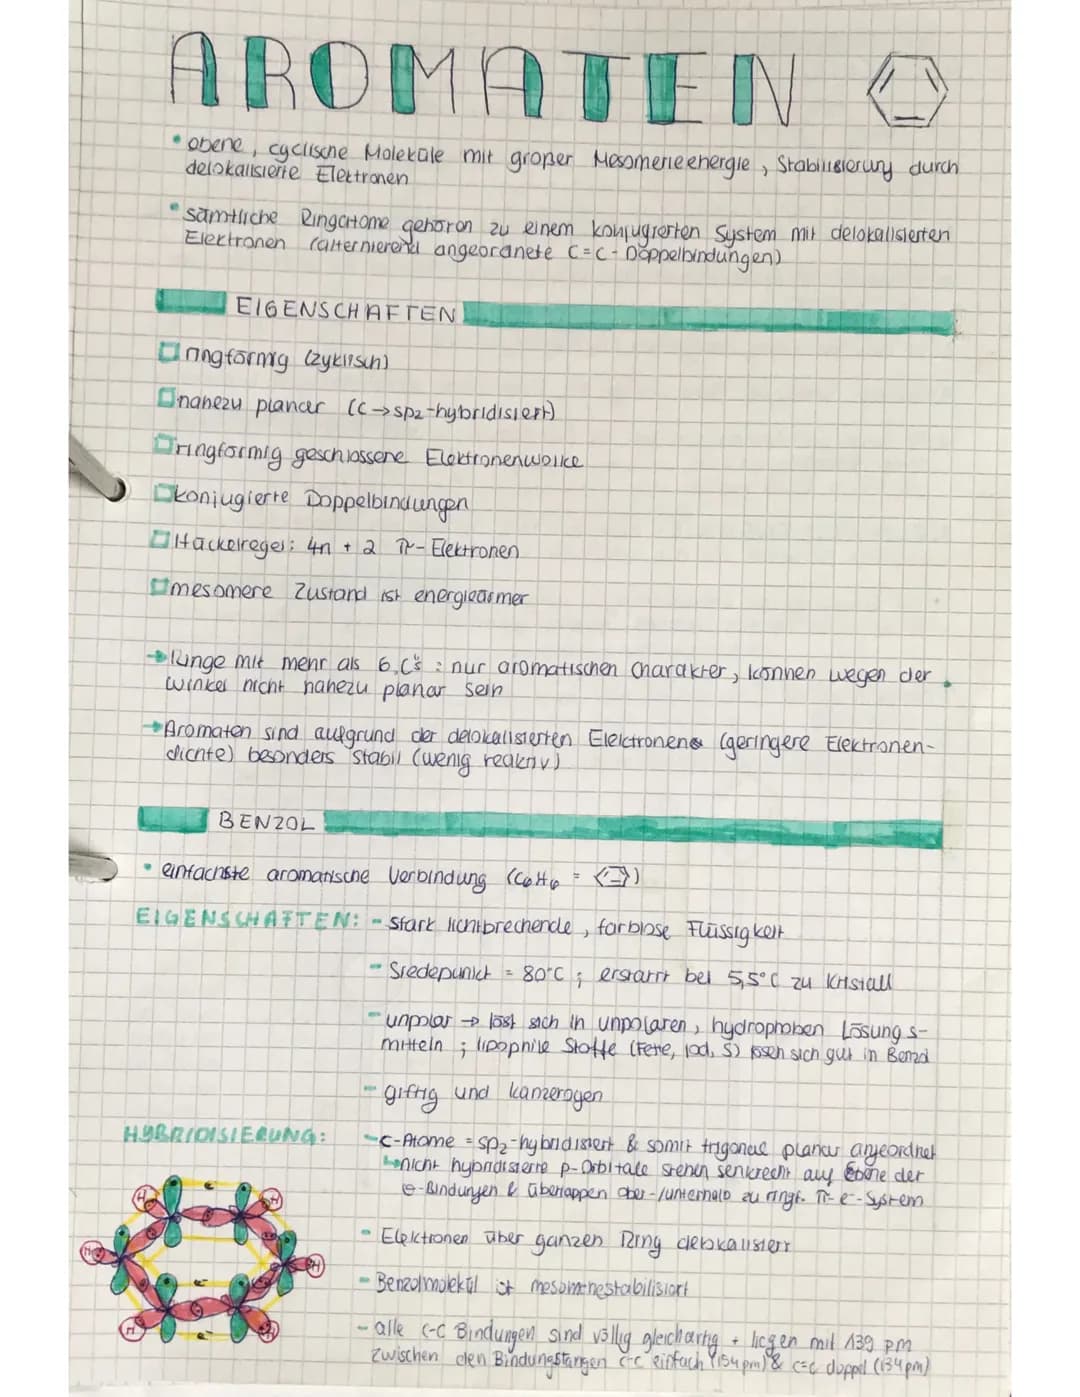 AROMATEN
• ebene, cyclische Moleküle mit großer Mesomerieenergie, Stabilisierung durch
delokalisierte Elektronen
• sämtliche Ringatome gehören zu einem konjugierten System mit delokalisierten
Elektronen (alternierend angeordnete C=C-Doppelbindungen)
EIGENSCHAFTEN
ringförmig (zyklisch)
nahezu planar (C→sp2-hybridisiert)
ringförmig geschlossene Elektronenwolke
konjugierte Doppelbindungen
Hückelregel: 4n + 2 π-Elektronen
mesomere Zustand ist energieärmer
→ Ringe mit mehr als 6 C's : nur aromatischen Charakter, können wegen der
Winkel nicht nahezu planar sein
→ Aromaten sind aufgrund der delokalisierten Elektronen (geringere Elektronen-
dichte) besonders stabil (wenig reaktiv)
BENZOL
• einfachste aromatische Verbindung (C6H6 = )
EIGENSCHAFTEN: - stark lichtbrechende, farblose Flüssigkeit
- Siedepunkt = 80°C ; erstarrt bei 5,5°C zu Kristall
- unpolar → löst sich in unpolaren, hydrophoben Lösungs-
mitteln ; lipophile Stoffe (Fette, Iod, S) lösen sich gut in Benzol
- giftig und kanzerogen
HYBRIDISIERUNG: - C-Atome = sp2-hybridisiert & somit trigonal planar angeordnet
↳ nicht hybridisierte p-Orbitale stehen senkrecht auf Ebene der
e-Bindungen & überlappen ober-/unterhalb zu ringf. π-e⁻-System
- Elektronen über ganzen Ring delokalisiert
- Benzolmolekül ist mesomeriestabilisiert
- alle C-C Bindungen sind völlig gleichartig + liegen mit 139 pm
zwischen den Bindungslängen C-C einfach (154pm) & C=C doppel (134pm)
H
H
e⁻
H
H
e⁻
H
H
e⁻